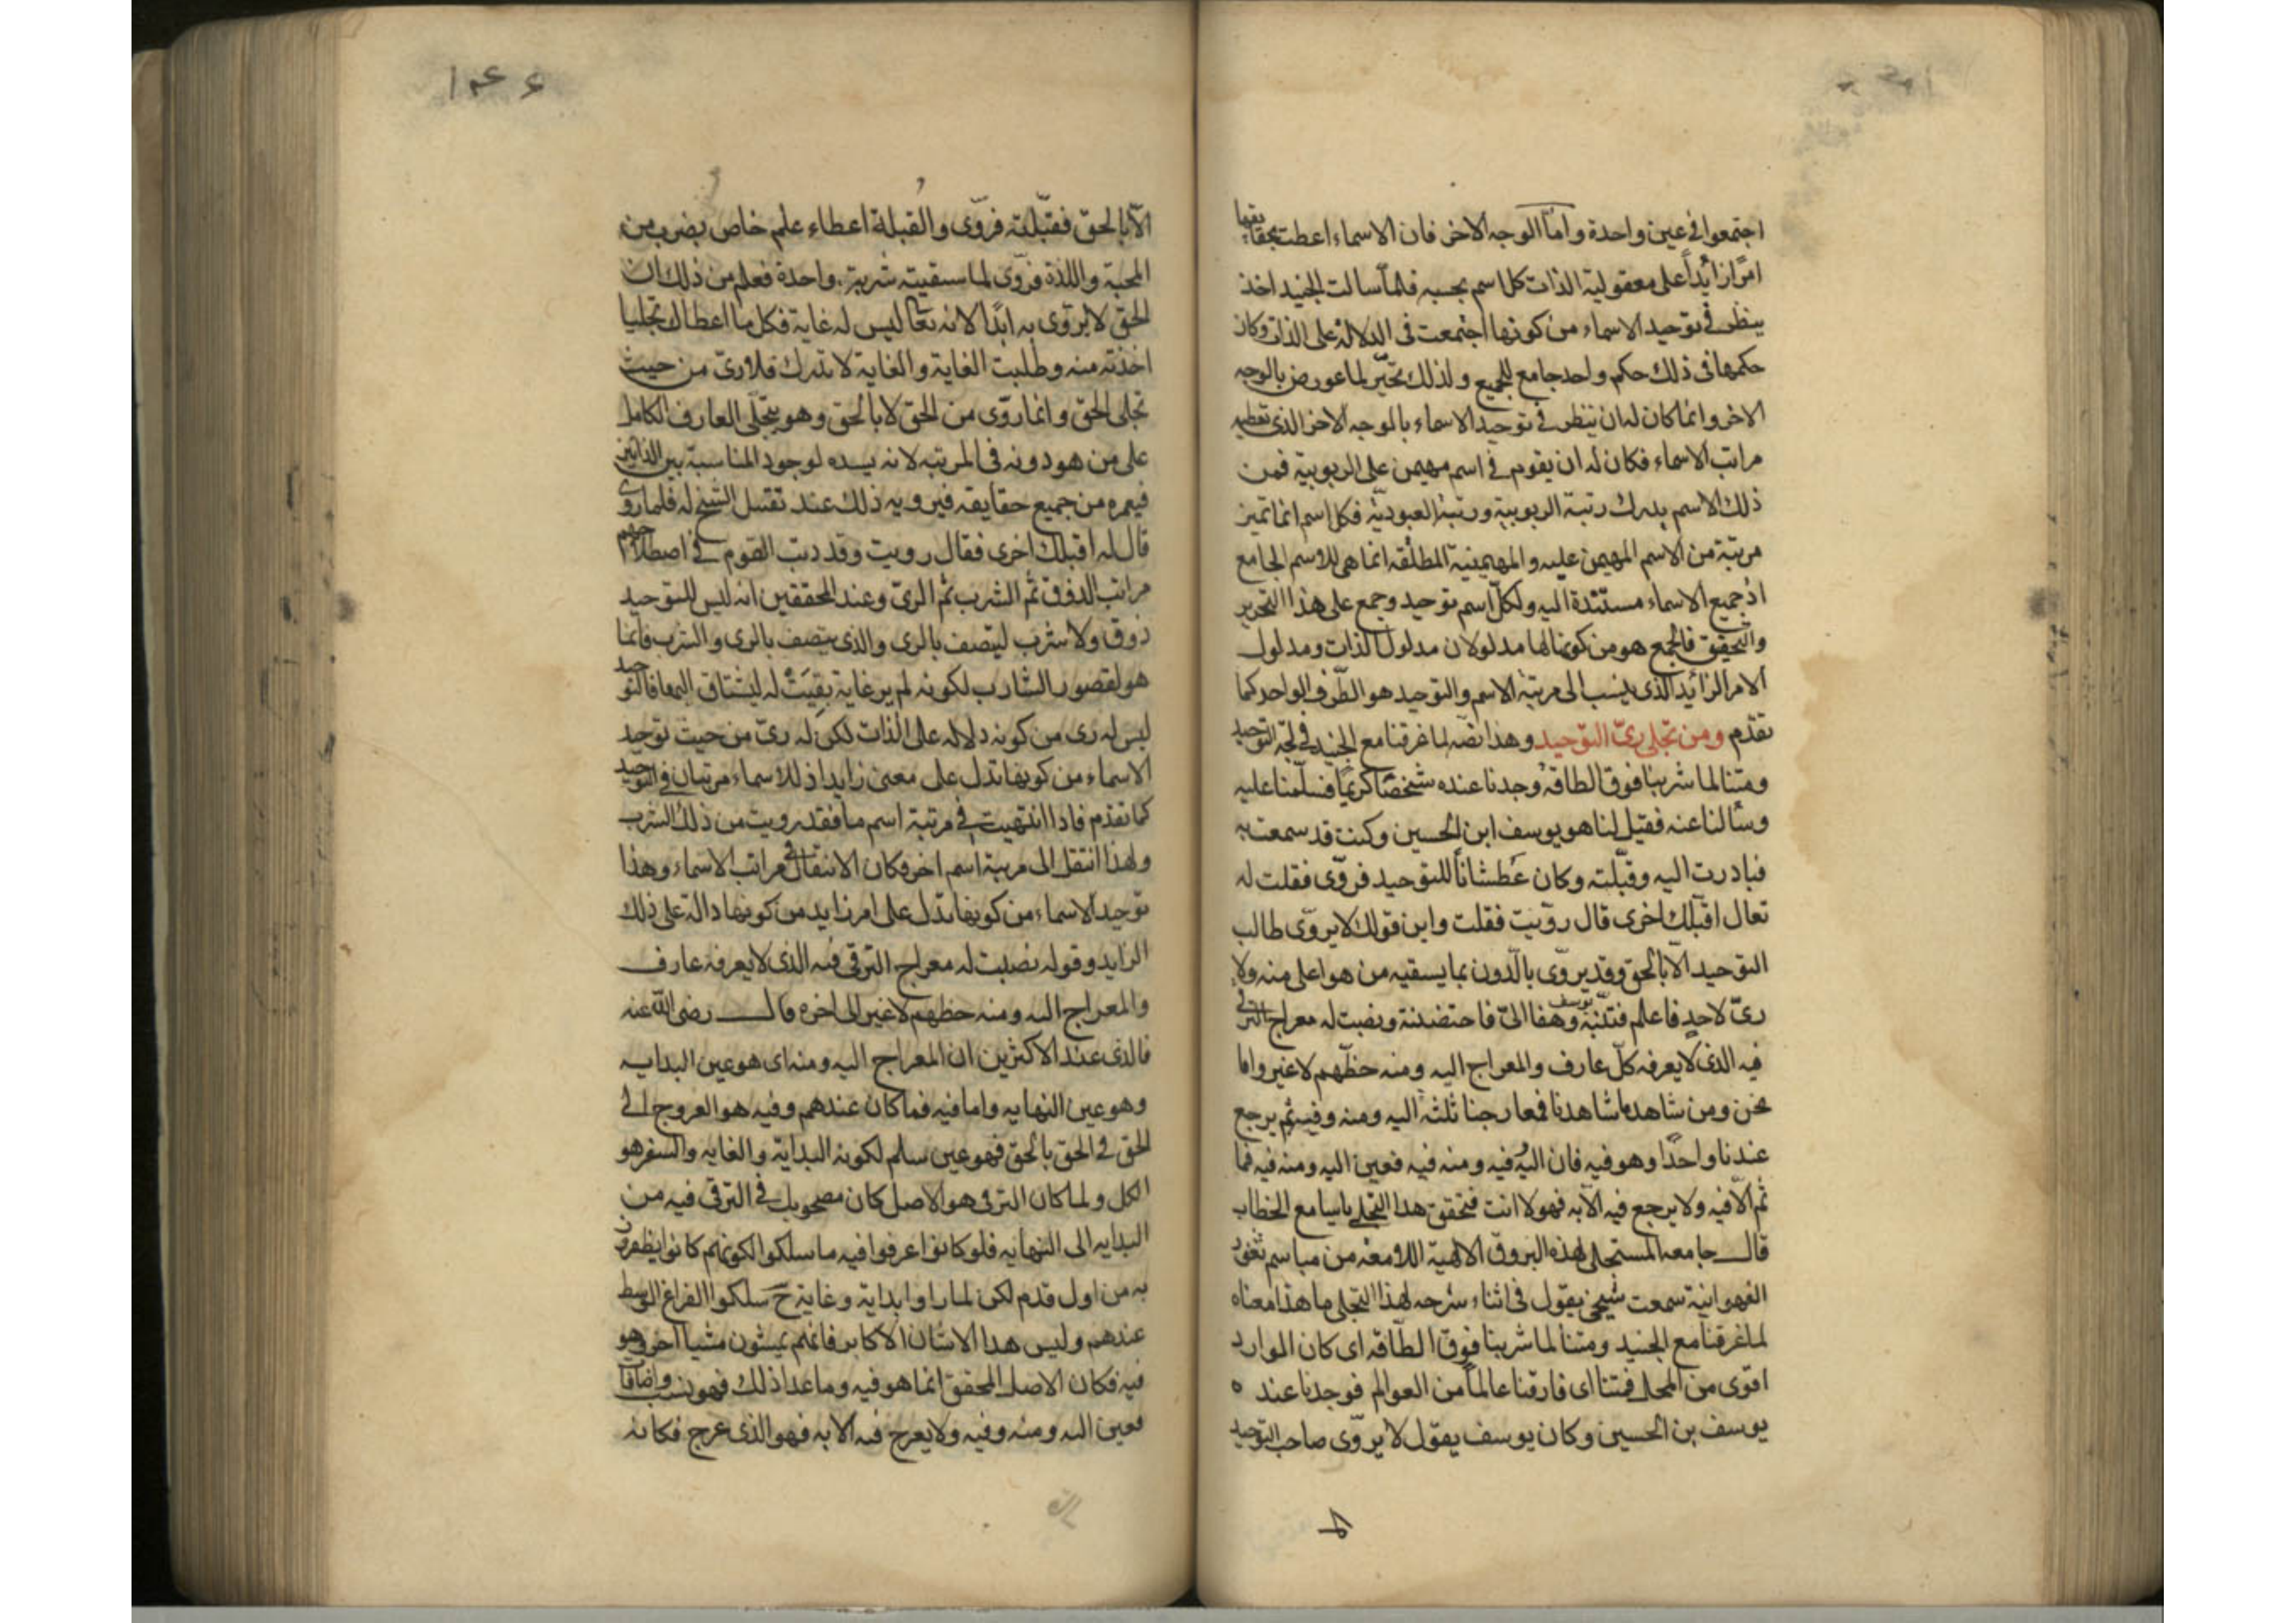 اجتمعوا في عين واحدة واما الوجه الاخر فان الاسماء اعطت بحقايقها
امرًا زائدًا على معقولية الذات كل اسم بحسبه فلما سالت الجنيد اخذ
ينظر في توحيد الاسماء من كونها اجتمعت في الدلالة على الذات وكان
حكمها في ذلك حكم واحد جامع للجميع ولذلك تحيّر لما عورض بالوجه
الاخر وانما كان له ان ينظر في توحيد الاسماء بالوجه الاخر الذي تعطيه
مراتب الاسماء فكان له ان يقوم في اسم مهيمن على الربوبية فمن
ذلك الاسم يدرك رتبة الربوبية ورتبة العبودية فكل اسم انما تميز
مرتبة من الاسم المهيمن عليه والمهيمنية المطلقة انما هى للاسم الجامع
اذ جميع الاسماء مستندة اليه ولكل اسم توحيد وجمع على هذا التحرير
والتحقيق فالجمع هو من كونها لها مدلولان مدلول الذات ومدلول
الامر الزائد الذي ينسب الى مرتبة الاسم والتوحيد هو الطرف الواحد كما
تقدم ومن تجلى ريّ التوحيد وهذا نصه لما غرقنا مع الجنيد في لجة التوحيد
ومتنا لما شربنا فوق الطاقة وجدنا عنده شخصًا كريمًا فسلّمنا عليه
وسألنا عنه فقيل لنا هو يوسف ابن الحسين وكنت قد سمعت به
فبادرت اليه وقبّلته وكان عطشانًا للتوحيد فروّى فقلت له
تعال اقبّلك اخرى قال رويت فقلت واين قولك لا يروّى طالب
التوحيد الا بالحق وقد يروّى بالدون بما يسقيه من هو اعلى منه ولا
ريّ لاحد فاعلم فتنبّه يوسف وهفا اليّ فاحتضنته ونصبت له معراج الترقى
فيه الذي لا يعرفه كل عارف والمعراج اليه ومنه حظهم لا غير واما
نحن ومن شاهد ما شاهدنا فمعارجنا ثلثة اليه ومنه وفيه ثم يرجع
عندنا واحدًا وهو فيه فان اليه فيه ومنه فيه فعين اليه ومنه فيه فما
ثم الا فيه ولا يرجع فيه الا به فهو لا انت فتحقق هذا التجلى يا سامع الخطاب
قال جامعه المستجلى لهذه البروق الالهية اللامعة من مباسم ثغور
الفهوانية سمعت شيخي يقول في اثناء شرحه لهذا التجلى ما هذا معناه
لما غرقنا مع الجنيد ومتنا لما شربنا فوق الطاقة اى كان الوارد
اقوى من المحل فمتنا اى فارقنا عالمًا من العوالم فوجدنا عنده
يوسف بن الحسين وكان يوسف يقول لا يروّى صاحب التوحيد
١٤٤
الا بالحق فقبّلته فروّى والقبلة اعطاء علم خاص بضرب من
المحبة واللذة فروّى لما سقيته شربة واحدة فعلم من ذلك ان
الحق لا يروّى به ابدًا لانه تعالى ليس له غاية فكل ما اعطاك تجليا
اخذته منه وطلبت الغاية والغاية لا تدرك فلا رىّ من حيث
تجلى الحق وانما روّى من الحق لا بالحق وهو بتجلّى العارف الكامل
على من هو دونه في المرتبه لانه يسده لوجود المناسبة بين الذاتين
فيعمره من جميع حقايقه فيرويه ذلك عند تقبيل الشيخ له فلما روى
قال له اقبلك اخرى فقال رويت وقد رتب القوم في اصطلاحهم
مراتب الذوق ثم الشرب ثم الرىّ وعند المحققين انه ليس للتوحيد
ذوق ولا شرب ليتصف بالرى والذي يتصف بالرى والشرب فانما
هو لقصور الشارب لكونه لم ير غاية بقيت له ليشتاق اليها فالتوحيد
ليس له رى من كونه دلاله على الذات لكن له رىّ من حيث توحيد
الاسماء من كونها تدل على معنى زايد اذ للاسماء مرتبتان في التوحيد
كما تقدم فاذا انتهيت في مرتبة اسم ما فقد رويت من ذلك الشرب
ولهذا انتقل الى مرتبة اسم اخر فكان الانتقال في مراتب الاسماء وهذا
توحيد الاسماء من كونها تدل على امر زايد من كونها دالة على ذلك
الزايد وقوله نصبت له معراج الترقى فيه الذي لا يعرفه عارف
والمعراج اليه ومنه حظهم لا غير الى اخره قال رضى الله عنه
فالذى عند الاكثرين ان المعراج اليه ومنه اى هو عين البدايه
وهو عين النهايه واما فيه فما كان عندهم وفيه هو العروج الى
الحق في الحق بالحق فهو عين سلم لكونه البداية والغايه والسفر هو
الكل ولما كان الترقى هو الاصل كان مصحوبك في الترقى فيه من
البدايه الى النهايه فلو كانوا عرفوا فيه ما سلكوا لكونهم كانوا يظفرون
به من اول قدم لكن لما راوا بداية وغاية ح سلكوا الفراغ الوسط
عندهم وليس هذا الاشان الاكابر فانهم يمشون مشيا اخر وهو
فيه فكان الاصل المحقق انما هو فيه وما عدا ذلك فهو نسب واضافا
فعين اليه ومنه وفيه ولا يعرج فيه الا به فهو الذى عرج فكانه